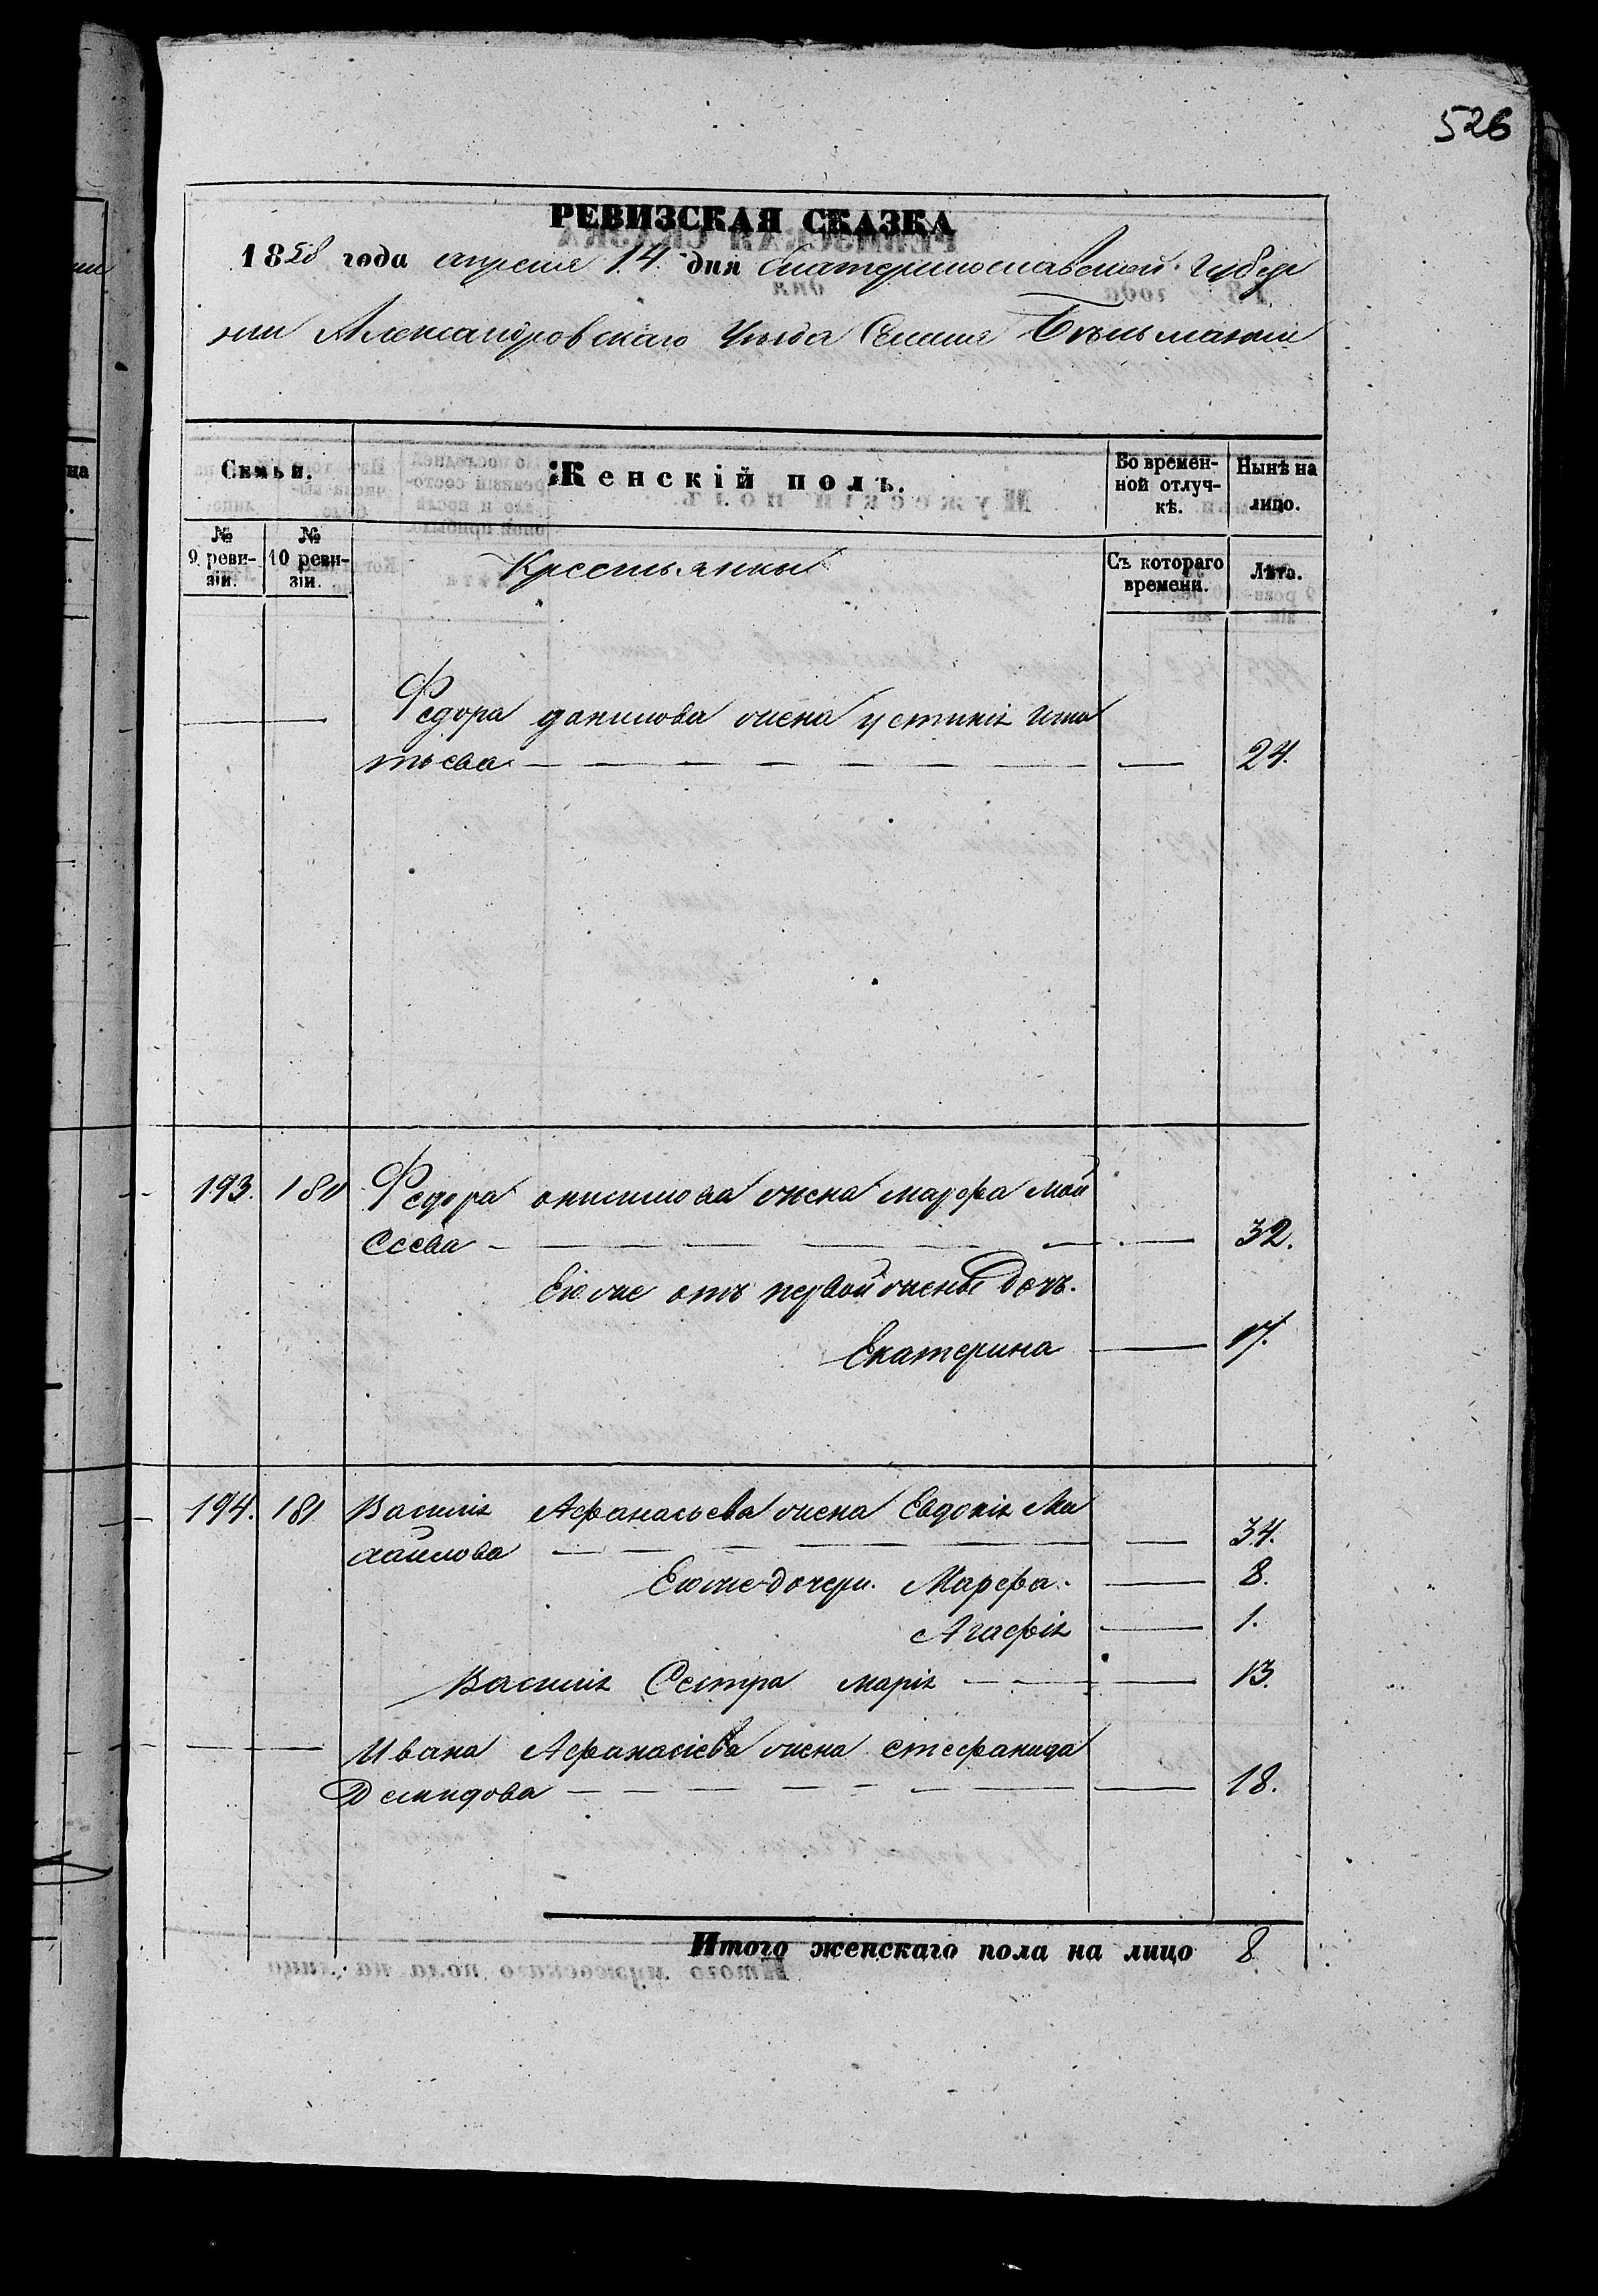 526
РЕВИЗСКАЯ СКАЗКА
1858 года апреля 14. дня Екатеринославской Губер
нии Александровскаго Уезда Селения Бельманки
Семьи.
Женскiй полъ.
Во времен-
ной отлуч-
кѣ.
Нынѣ на
лицо.
№
9 реви-
зiи.
№
10 реви-
зiи.
Крестьянки
Съ котораго
времени.
Лѣта.
Федора данилова жена устинiя игна
тьева 24.
193. 180 Федора онисимова жена марфа мои
сеева 32.
Его же отъ первой жены дочь.
Екатерина 17.
194. 181 Василiя Афанасьева жена Евдокiя Ми
хайлова 34.
Его же дочери. Марфа. 8.
Агафiя 1.
Василiя Сестра марiя 13.
Ивана Афанасiева жена стефанида
Демидова 18.
Итого женскаго пола на лицо 8